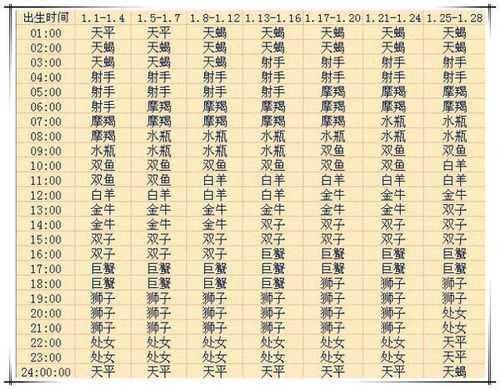 出生时间 1.1-1.4 1.5-1.7 1.8-1.12 1.13-1.16 1.17-1.20 1.21-1.24 1.25-1.28
01:00 天平 天平 天蝎 天蝎 天蝎 天蝎 天蝎
02:00 天蝎 天蝎 天蝎 天蝎 天蝎 天蝎 天蝎
03:00 天蝎 天蝎 天蝎 射手 射手 射手 射手
04:00 射手 射手 射手 射手 射手 射手 射手
05:00 射手 射手 射手 射手 摩羯 摩羯 摩羯
06:00 射手 摩羯 摩羯 摩羯 摩羯 摩羯 摩羯
07:00 摩羯 摩羯 摩羯 摩羯 摩羯 水瓶 水瓶
08:00 摩羯 水瓶 水瓶 水瓶 水瓶 水瓶 水瓶
09:00 水瓶 水瓶 水瓶 双鱼 双鱼 双鱼 双鱼
10:00 双鱼 双鱼 双鱼 双鱼 双鱼 双鱼 白羊
11:00 双鱼 双鱼 白羊 白羊 白羊 白羊 白羊
12:00 白羊 白羊 白羊 金牛 金牛 金牛 金牛
13:00 金牛 金牛 金牛 金牛 金牛 金牛 双子
14:00 金牛 金牛 金牛 双子 双子 双子 双子
15:00 双子 双子 双子 双子 双子 双子 双子
16:00 双子 双子 双子 巨蟹 巨蟹 巨蟹 巨蟹
17:00 巨蟹 巨蟹 巨蟹 巨蟹 巨蟹 巨蟹 巨蟹
18:00 巨蟹 巨蟹 巨蟹 巨蟹 狮子 狮子 狮子
19:00 狮子 狮子 狮子 狮子 狮子 狮子 狮子
20:00 狮子 狮子 狮子 狮子 狮子 狮子 处女
21:00 狮子 狮子 狮子 处女 处女 处女 处女
22:00 处女 处女 处女 处女 处女 处女 天平
23:00 处女 处女 处女 处女 处女 处女 天平
24:00:00 天平 天平 天平 天平 天平 天平 天蝎